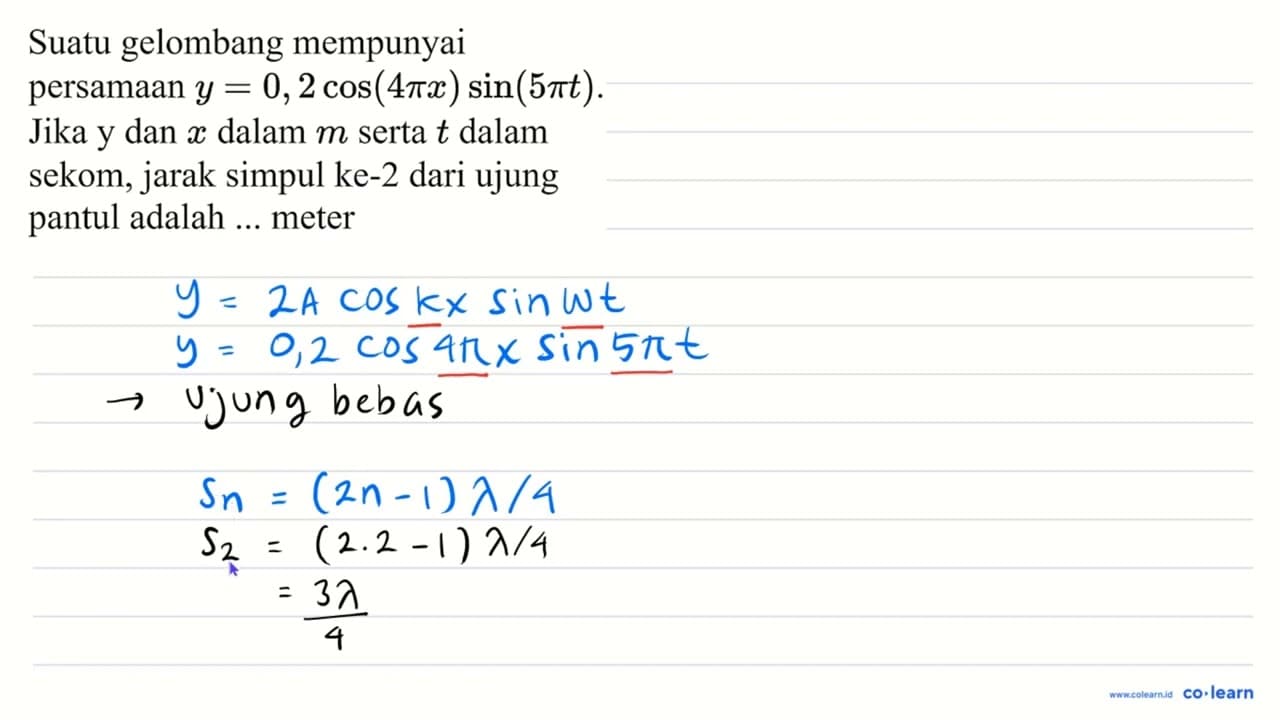 Suatu gelombang mempunyai
persamaan y = 0, 2 cos(4πx) sin(5πt).
Jika y dan x dalam m serta t dalam
sekom, jarak simpul ke-2 dari ujung
pantul adalah ... meter
y = 2A cos kx sin ωt
y = 0,2 cos 4πx sin 5πt
→ Ujung bebas
Sn = (2n - 1) λ/4
S2 = (2.2 - 1) λ/4
= 3λ
4
www.colearn.id co·learn